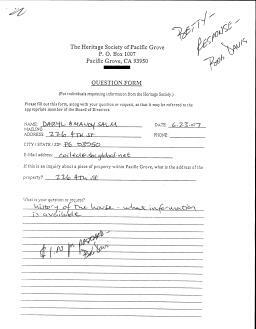 BETTY -
RESPONSE -
The Heritage Society of Pacific Grove
P. O. Box 1007
Pacific Grove, CA 93950
QUESTION FORM
(For individuals requesting information from the Heritage Society.)
Please fill out this form, along with your question or request, so that it may be referred to the
appropriate member of the Board of Directors.
NAME: DARYL & NANCY DATE 6-23-07
MAILING
ADDRESS 226 4TH ST PHONE
CITY / STATE / ZIP PG
E-Mail address
If this is an inquiry about a place of property within Pacific Grove, what is the address of the
property? 226 4th St
What is your question or request?
history of the house - what information
is available